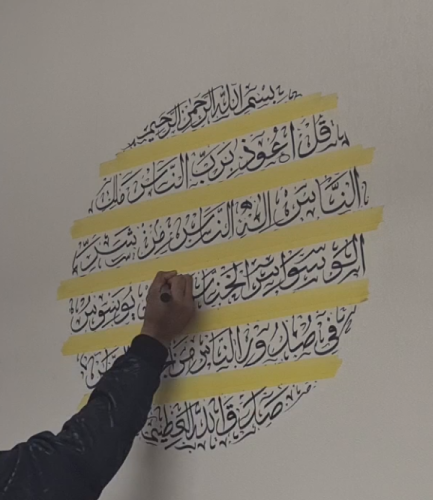 بسم الله الرحمن الرحيم
قل اعوذ برب الناس ملك
الناس اله الناس من شر
الوسواس الخناس يوسوس
في صدور الناس من
صدق الله العظيم